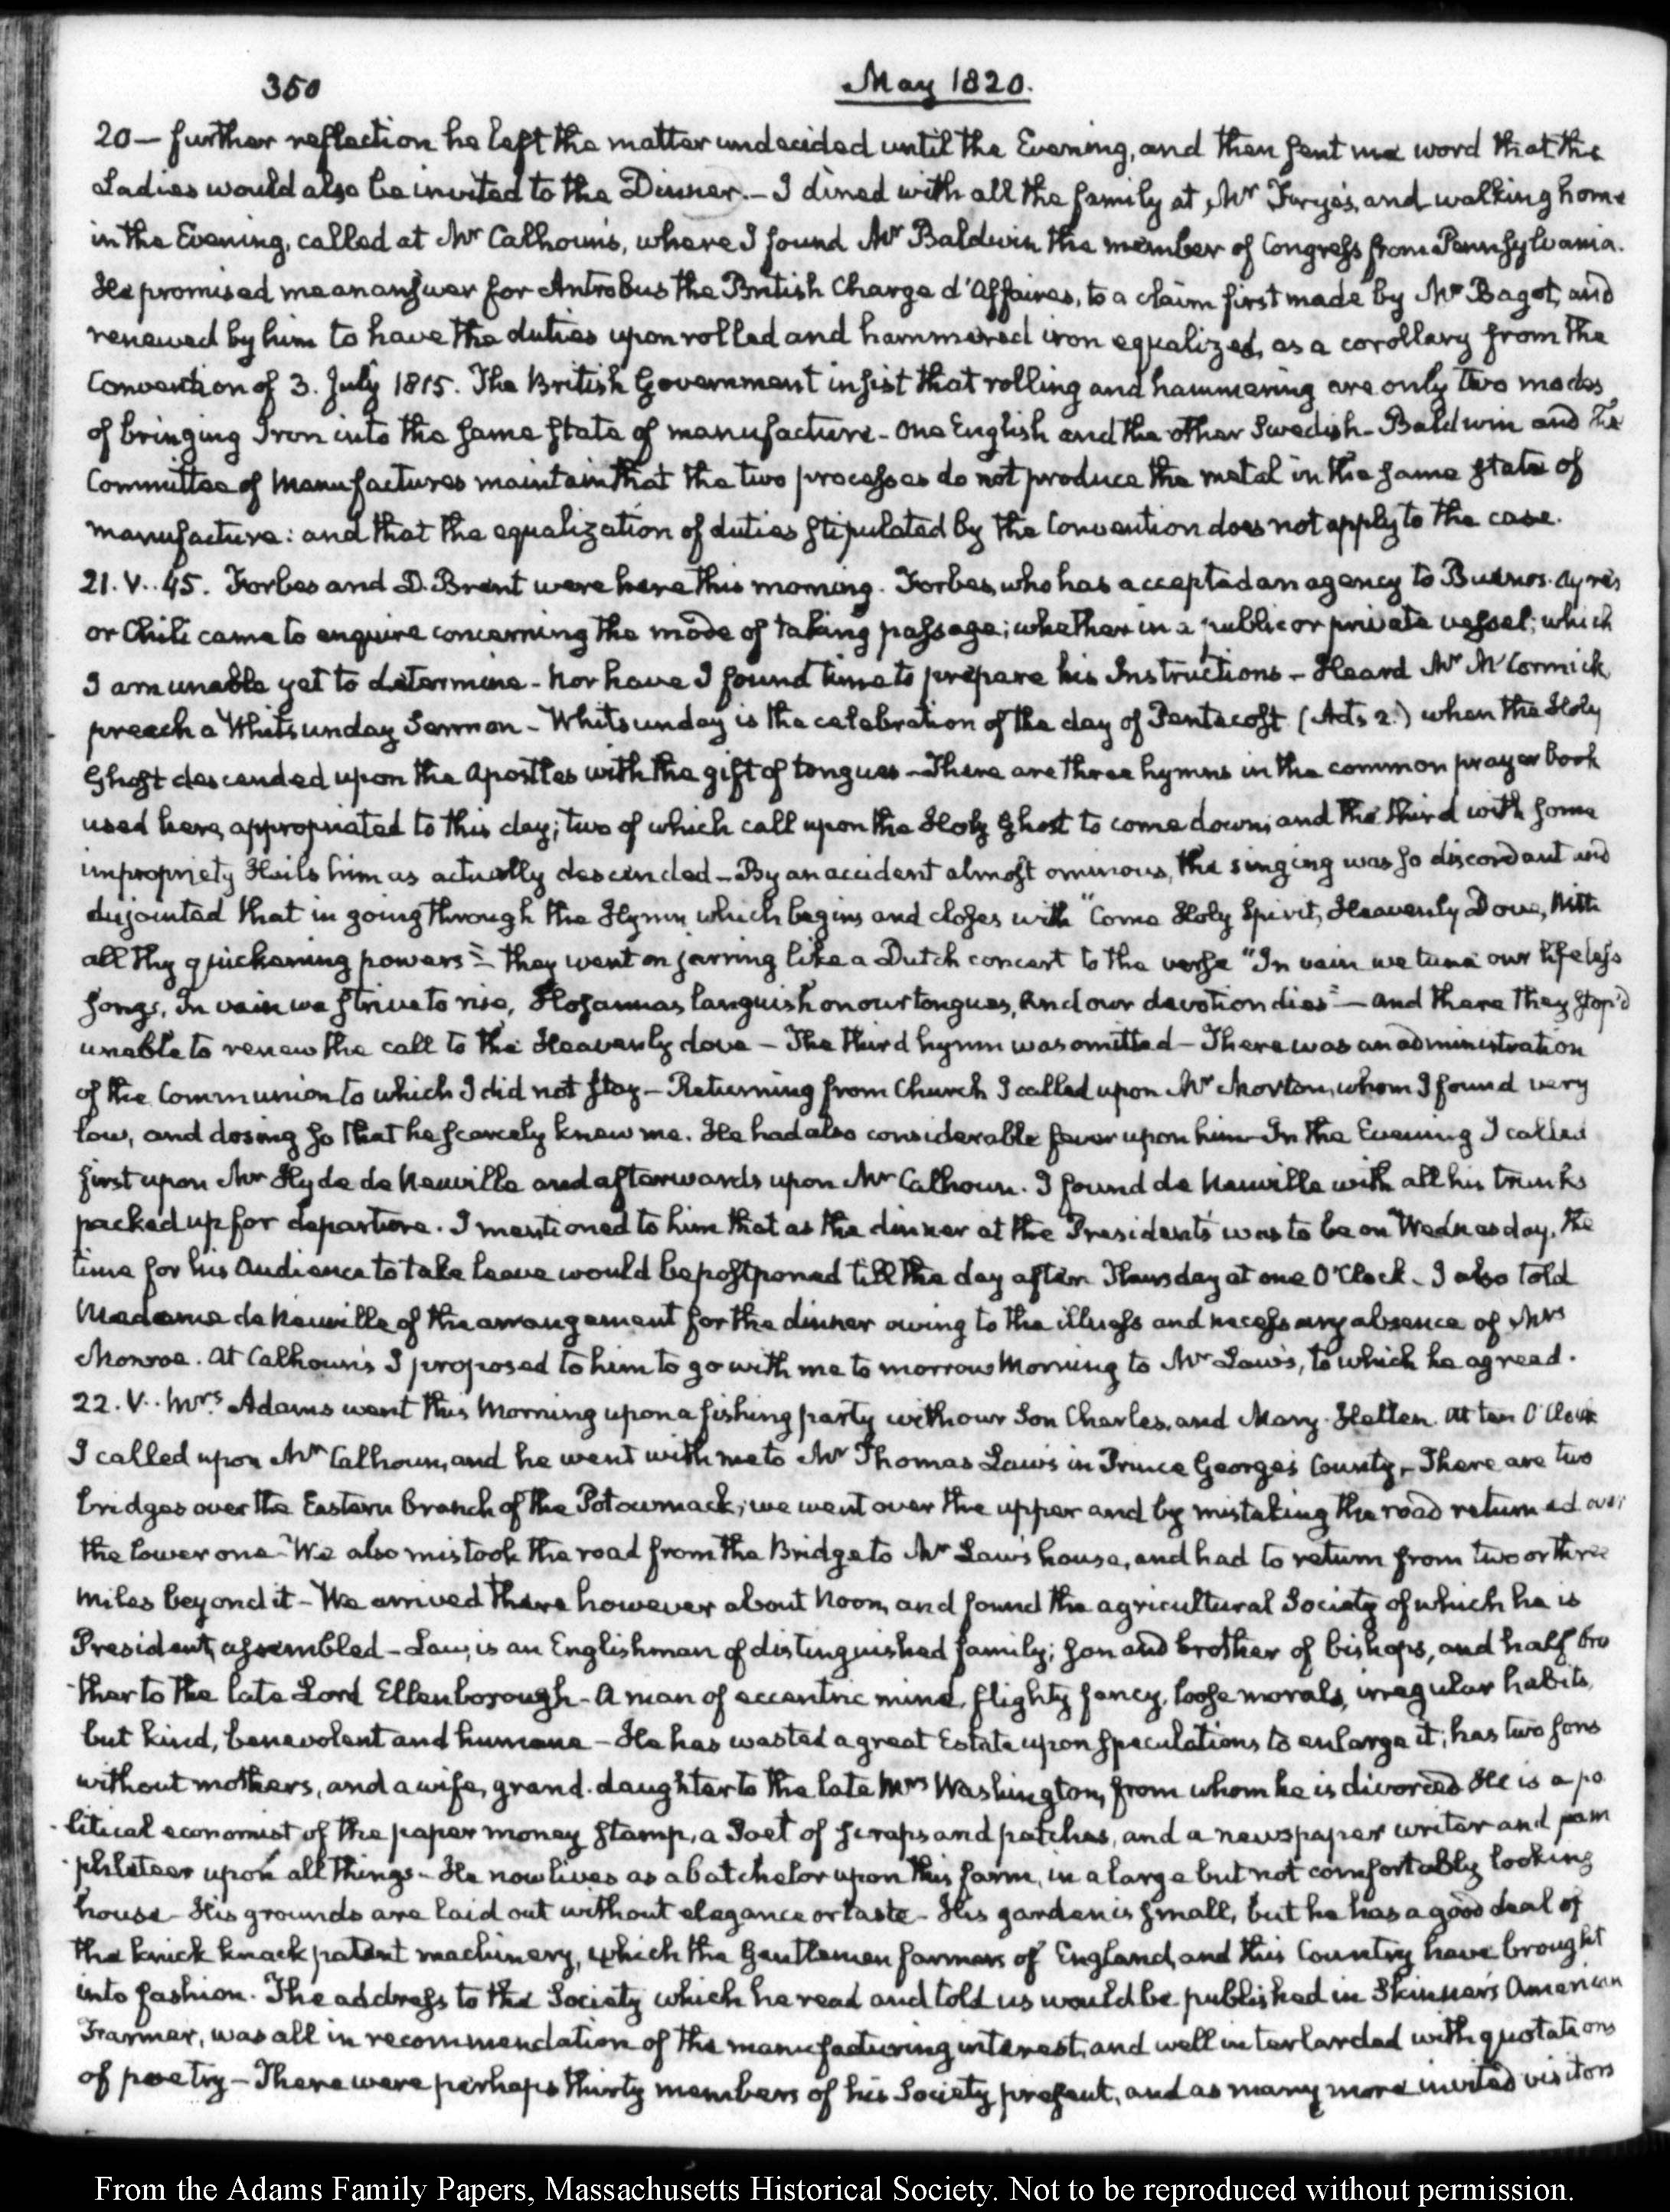 350
May 1820.
20 — further reflection he left the matter undecided until the Evening, and then sent me word that the
Ladies would also be invited to the Dinner. — I dined with all the family at Mr Frye's, and walking home
in the Evening, called at Mr Calhoun's, where I found Mr Baldwin the member of Congress from Pennsylvania.
He promised me an answer for Antrobus the British Charge d'Affaires, to a claim first made by Mr Bagot, and
renewed by him to have the duties upon rolled and hammered iron equalized, as a corollary from the
Convention of 3. July 1815. The British Government insist that rolling and hammering are only two modes
of bringing Iron into the same state of manufacture - one English and the other Swedish - Baldwin and the
Committee of Manufactures maintain that the two processes do not produce the metal in the same state of
manufacture: and that the equalization of duties stipulated by the Convention does not apply to the case.
21. V.. 45. Forbes and D. Brent were here this morning. Forbes, who has accepted an agency to Buenos-Ayres
or Chili came to enquire concerning the mode of taking passage; whether in a public or private vessel; which
I am unable yet to determine - Nor have I found time to prepare his Instructions - Heard Mr McCormick
preach a Whitsunday Sermon - Whitsunday is the celebration of the day of Pentecost (Acts 2.) when the Holy
Ghost descended upon the Apostles with the gift of tongues - There are three hymns in the common prayer book
used here, appropriated to this day; two of which call upon the Holy Ghost to come down; and the third with some
impropriety Hails him as actually descended - By an accident almost ominous, the singing was so discordant and
disjointed that in going through the Hymn, which begins and closes with "Come Holy Spirit, Heavenly Dove, With
all thy quickening powers" - they went on jarring like a Dutch concert to the verse "In vain we tune our lifeless
songs, In vain we strive to rise, Hosannas languish on our tongues, And our devotion dies" — and there they stop'd
unable to renew the call to the Heavenly dove - The third hymn was omitted - There was an administration
of the Communion to which I did not stay - Returning from Church I called upon Mr Morton, whom I found very
low, and dosing so that he scarcely knew me. He had also considerable fever upon him - In the Evening I called
first upon Mr Hyde de Neuville and afterwards upon Mr Calhoun. I found de Neuville with all his trunks
packed up for departure. I mentioned to him that as the dinner at the President's was to be on Wednesday, the
time for his Audience to take leave would be postponed till the day after. Thursday at one O'Clock - I also told
Madame de Neuville of the arrangement for the dinner owing to the illness and necessary absence of Mrs
Monroe. At Calhoun's I proposed to him to go with me to morrow Morning to Mr Law's, to which he agreed.
22. V.. Mrs Adams went this Morning upon a fishing party with our Son Charles, and Mary Hellen. At ten O'Clock
I called upon Mr Calhoun, and he went with me to Mr Thomas Law's in Prince George's County, - There are two
bridges over the Eastern branch of the Potowmack; we went over the upper and by mistaking the road returned over
the lower one - We also mistook the road from the Bridge to Mr Law's house, and had to return from two or three
miles beyond it - We arrived there however about Noon, and found the agricultural Society of which he is
President, assembled - Law, is an Englishman of distinguished family; son and brother of bishops, and half bro
-ther to the late Lord Ellenborough - A man of eccentric mind, flighty fancy, loose morals, irregular habits,
but kind, benevolent and humane - He has wasted a great Estate upon speculations to enlarge it; has two sons
without mothers, and a wife, grand-daughter to the late Mrs Washington, from whom he is divorced He is a po
-litical economist of the paper money stamp, a Poet of scraps and patches, and a newspaper writer and pam
-phleteer upon all things - He now lives as a batchelor upon this farm, in a large but not comfortably looking
house - His grounds are laid out without elegance or taste - His garden is small, but he has a good deal of
the knick knack patent machinery, which the Gentlemen farmers of England, and this Country have brought
into fashion. The address to the Society which he read and told us would be published in Skinner's American
Farmer, was all in recommendation of the manufacturing interest, and well interlarded with quotations
of poetry - There were perhaps thirty members of his Society present, and as many more invited visitors
From the Adams Family Papers, Massachusetts Historical Society. Not to be reproduced without permission.